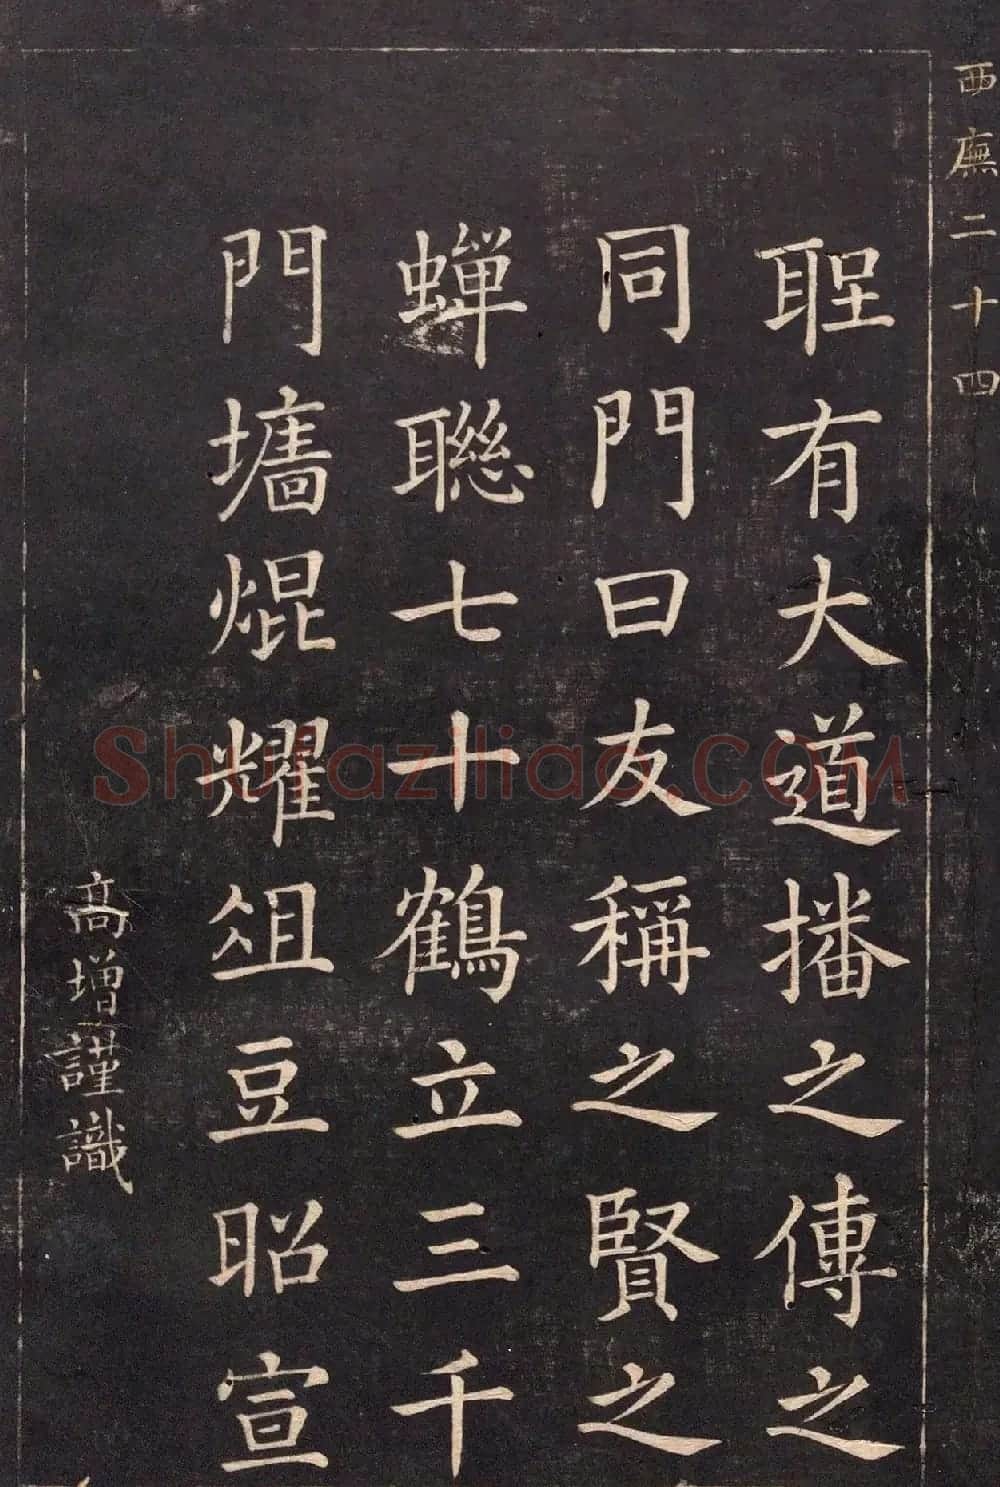 西廡二十四
聖有大道播之傳之
同門曰友稱之賢之
蟬聯七十鶴立三千
門墻焜耀俎豆昭宣
高增謹識
Shufaziliao.COM